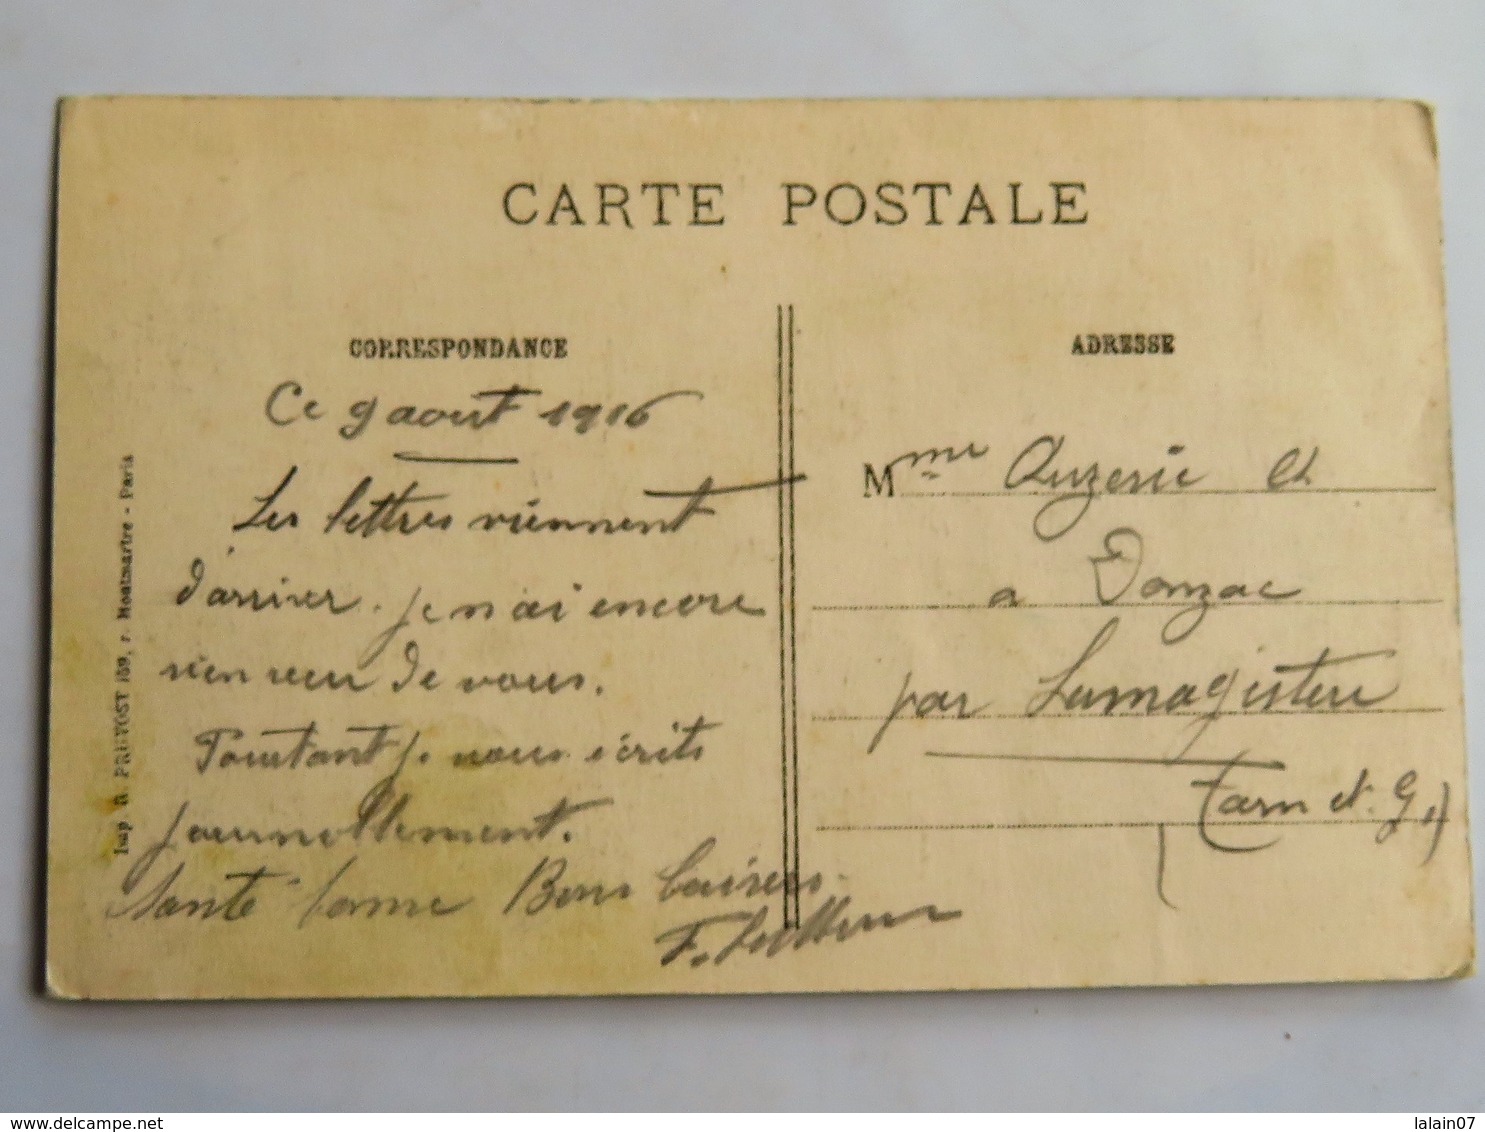 CARTE POSTALE
CORRESPONDANCE
Ce 9 aout 1916
Les lettres viennent
d'arriver. je n'ai encore
rien reçu de vous.
Pourtant je vous écrits
journellement.
Santé bonne Bons baisers.
F.
ADRESSE
Mme Auzeric
a Donzac
par Lamagistere
(Tarn et. G.)
Imp R. PRUVOST 159, r. Montmartre - Paris
delcampe.net
lalain07